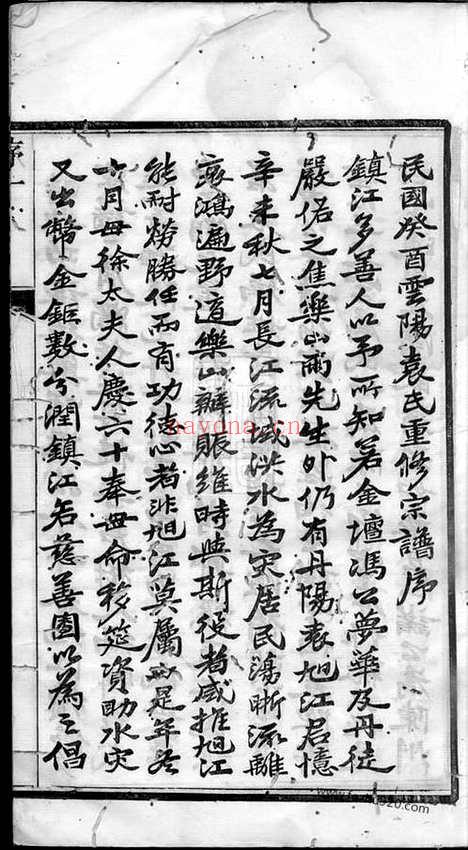 民國癸酉雲陽袁氏重修宗譜序
鎮江多善人以予所知若金壇馮公夢華及丹徒
嚴佑之焦樂山兩先生外仍有丹陽袁旭江君憶
辛未秋七月長江流域洪水為災居民蕩晰流離
哀鴻遍野道樂山辦賑維時與斯役者咸推旭江
能耐勞勝任而有功德心者非旭江莫屬而是年冬
月母徐太夫人慶六十奉母命移筵資助水灾
又出幣金鉅數分潤鎮江名慈善團以為之倡
序一
nayona.cn